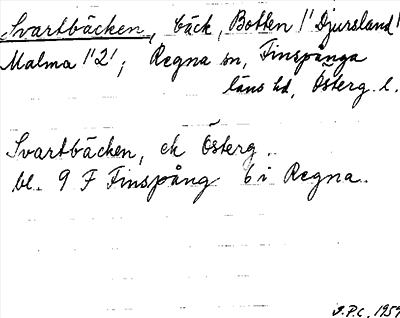 Svartbäcken, bäck, Botten 1¹ Djursland 1¹
Malma 1¹ 2¹; Regna sn, Finspånga
läns hd, Österg. l.
Svartbäcken, ek Österg.
bl. 9 F Finspång 6 i Regna.
J.P.C. 1959